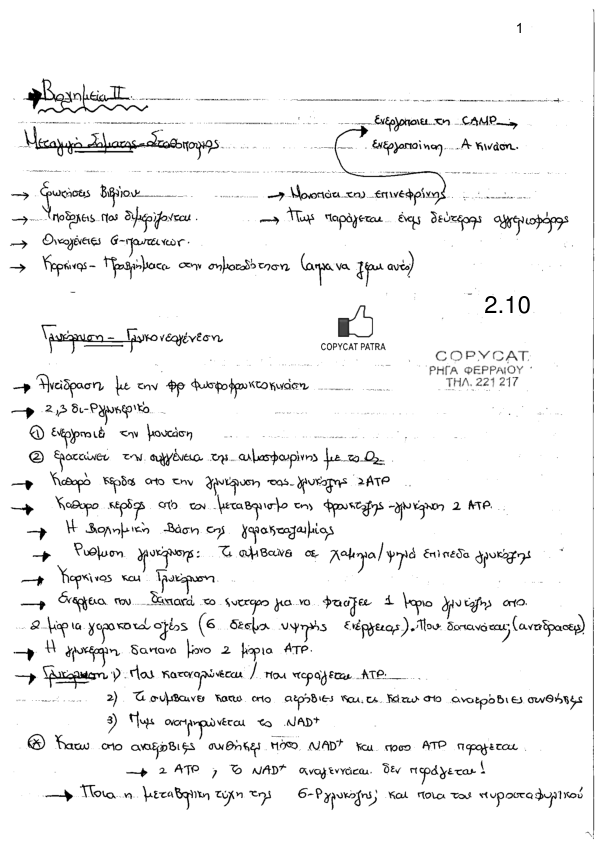 1
Βιοχημεία II
ενεργοποιει τη cAMP →
Μεταγωγή Σήματος - Σταθόπουλος
ενεργοποίηση Α κινάση.
→ Ερωτήσεις βιβλίου
→ Μονοπάτι της επινεφρίνης
→ Υποδοχείς που διμερίζονται.
→ Πως παράγεται ένας δεύτερος αγγελιοφόρος
→ Οικογένειες G-πρωτεινών.
→ Καρκίνος - Προβλήματα στην σηματοδότηση (απλα να ξερω αυτό)
2.10
Γλυκόλυση - Γλυκονεογένεση
COPYCAT PATRA
COPYCAT
ΡΗΓΑ ΦΕΡΡΑΙΟΥ
ΤΗΛ. 221 217
→ Αντίδραση με την φρ φωσφοφρουκτοκινάση
→ 2,3 δι-Pγλυκερικό
① ενεργοποιεί την μουτάση
② ελαττώνει την συγγένεια της αιμοσφαιρίνης με το O2
→ Καθαρό κέρδος απο την γλυκόλυση της γλυκόζης 2ATP
→ Καθαρο κερδος από τον μεταβολισμο της φρουκτόζης - γλυκόλυση 2 ATP.
→ Η Βιοχημική Βάση της γαλακτοζαιμίας
→ Ρυθμιση γλυκόλυσης: Τι συμβαινει σε χαμηλα/ψηλά επίπεδα γλυκόζης
→ Καρκίνος και Γλυκόλυση
→ Ενέργεια που δαπανά το κυτταρο για να φτιαξει 1 μοριο γλυκόζης απο
2 μόρια γαλακτικού οξέος (6 δεσμοι υψηλής ενέργειας). Που δαπανάται; (αντιδρασεις)
→ Η γλυκόλυση δαπανα μονο 2 μόρια ATP.
→ Γλυκόλυση 1) Που καταναλώνεται / που παράγεται ATP.
2) Τι συμβαινει κατω απο αερόβιες και τι κάτω απο αναερόβιες συνθήκες
3) Πως αναπληρώνεται το NAD+
* Κατω απο αναερόβιες συνθήκες πόσο NAD+ και ποσο ATP παραγεται.
→ 2 ATP , το NAD+ αναγεννάται δεν παράγεται!
→ Ποια η μεταβολικη τύχη της 6-Pγλυκόζης; και ποια του πυροσταφυλικού